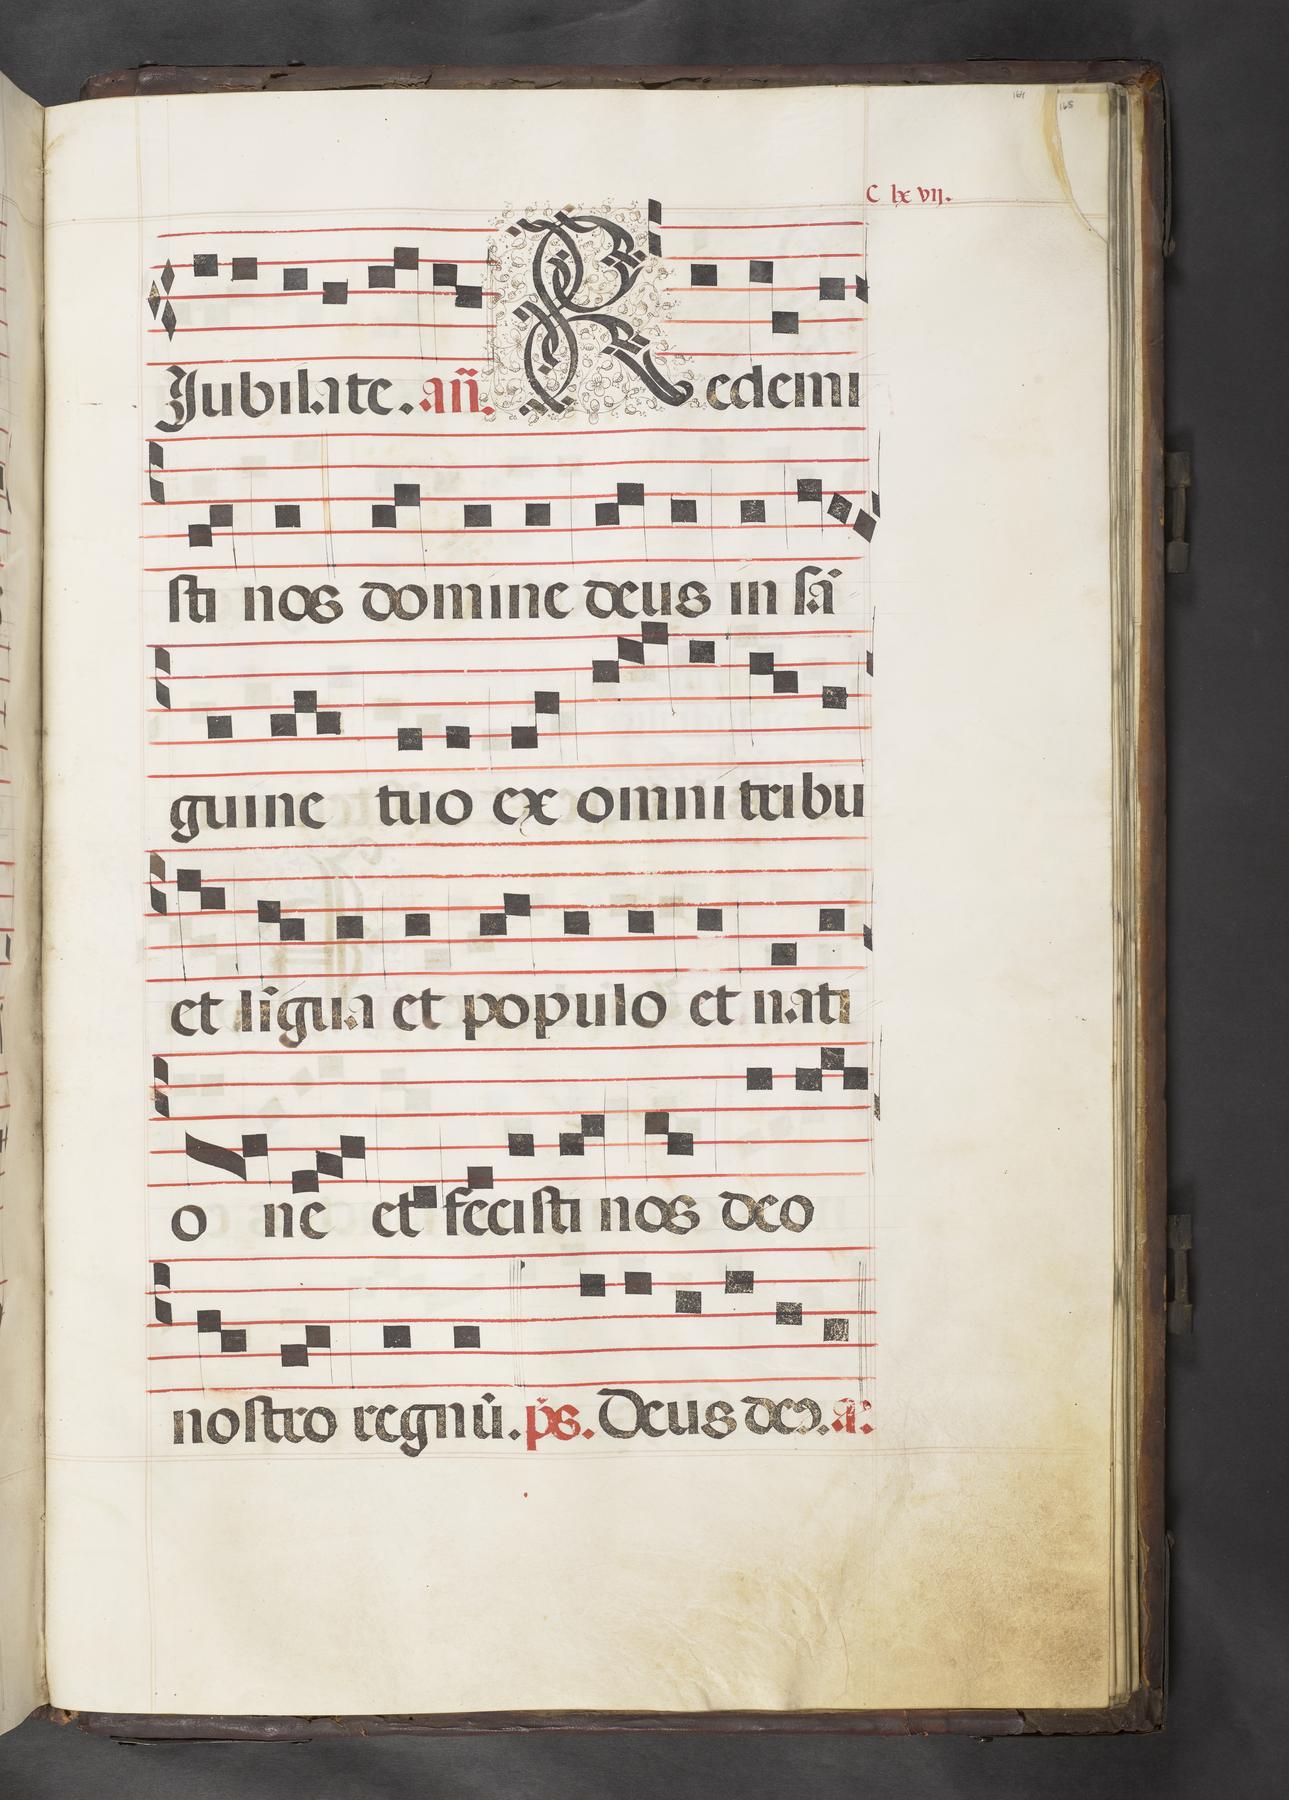 164
165
C lx vij.
Jubilate. añ. Redemi
sti nos domine deus in sã
guine tuo ex omni tribu
et lĩgua et populo et nati
o ne et fecisti nos deo
nostro regnũ. p̃s. Deus deꝯ. a.